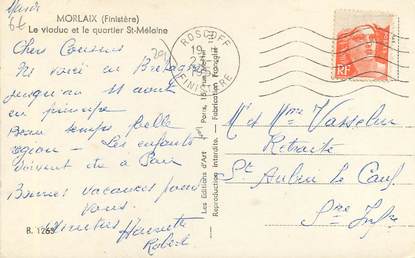 MORLAIX (Finistère)
Le viaduc et le quartier St-Mélaine
Chers Cousins
en Bretagne
jusqu'au 11 août
en principe
Beau temps belle
région - Les enfants
doivent être à
Bonnes vacances pour
vous.
Henriette
Robert
B. 1265
Les Editions d'Art
Paris, 15
Reproduction Interdite. - Fabrication Française
ROSCOFF
FINISTERE
RF
M et Mme Vasselin
Retraité
St Aubin le Cauf
Sne Infre